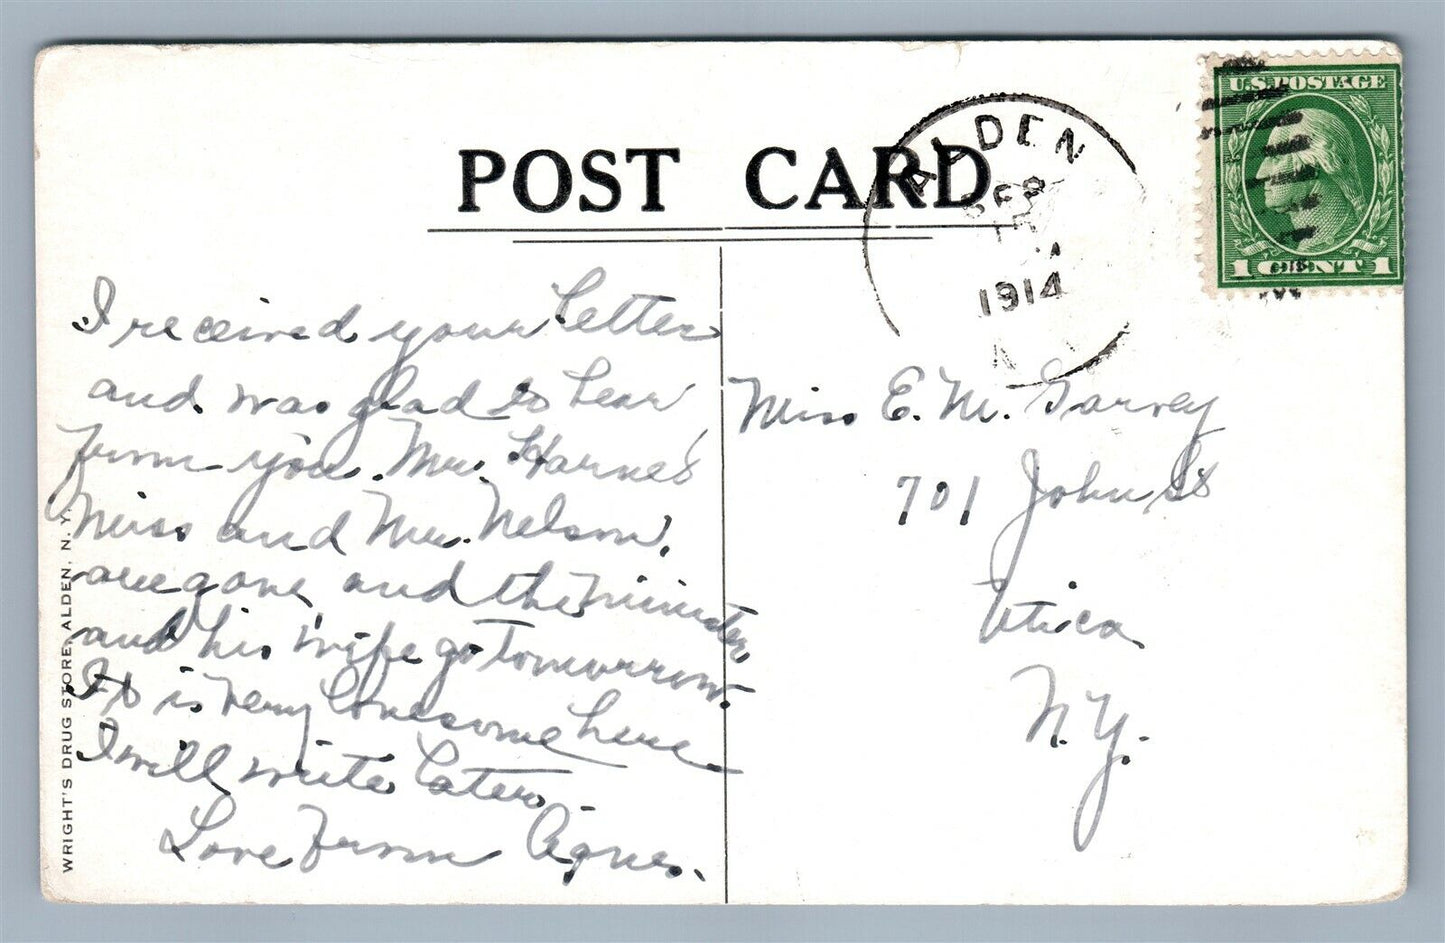 POST CARD
ALDEN
SEP
1914
N
U.S. POSTAGE
1 CENT 1
I received your letter
and was glad to hear
from you. Mr. Harnes
Miss and Mr. Nelson.
are gone and the minister
and his wife go tomorrow.
It is very lonesome here
I will write later.
Love from Agnes.
Miss E. M. Garvey
701 John St
Utica
N.Y.
WRIGHT'S DRUG STORE, ALDEN, N. Y.